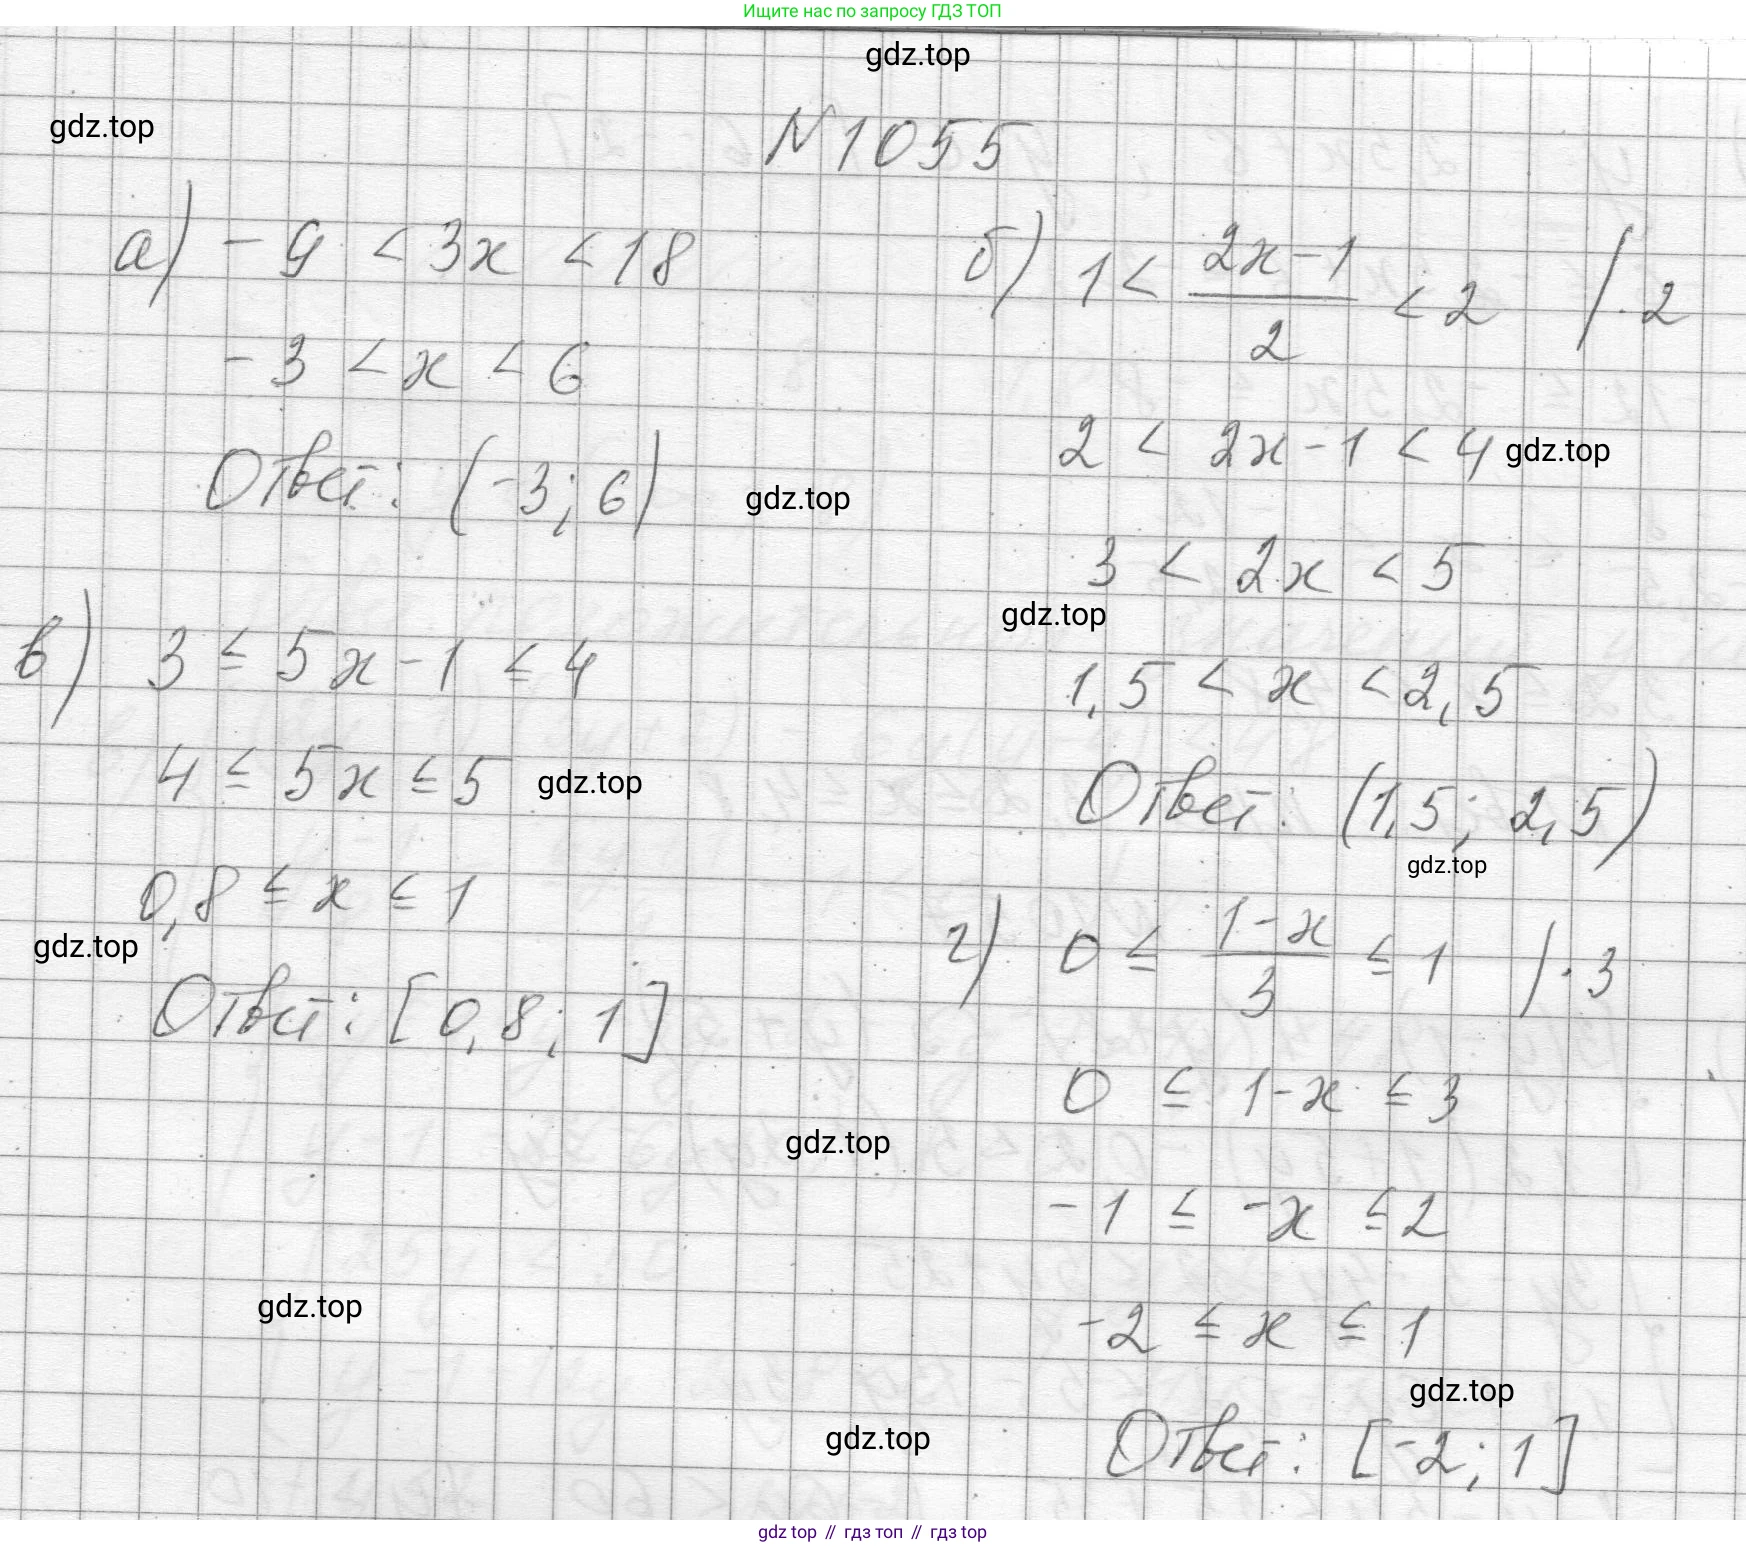 Ищите нас по запросу ГДЗ ТОП
gdz.top
gdz.top
N 1055
а) -9 < 3x < 18
-3 < x < 6
Ответ: (-3; 6)
gdz.top
б) 1 < (2x-1)/2 < 2 / · 2
2 < 2x-1 < 4
gdz.top
3 < 2x < 5
gdz.top
1,5 < x < 2,5
Ответ: (1,5; 2,5)
gdz.top
в) 3 ≤ 5x-1 ≤ 4
4 ≤ 5x ≤ 5
gdz.top
0,8 ≤ x ≤ 1
gdz.top
Ответ: [0,8; 1]
г) 0 ≤ (1-x)/3 ≤ 1 / · 3
0 ≤ 1-x ≤ 3
gdz.top
-1 ≤ -x ≤ 2
gdz.top
-2 ≤ x ≤ 1
gdz.top
gdz.top
Ответ: [-2; 1]
gdz top // гдз топ // гдз top